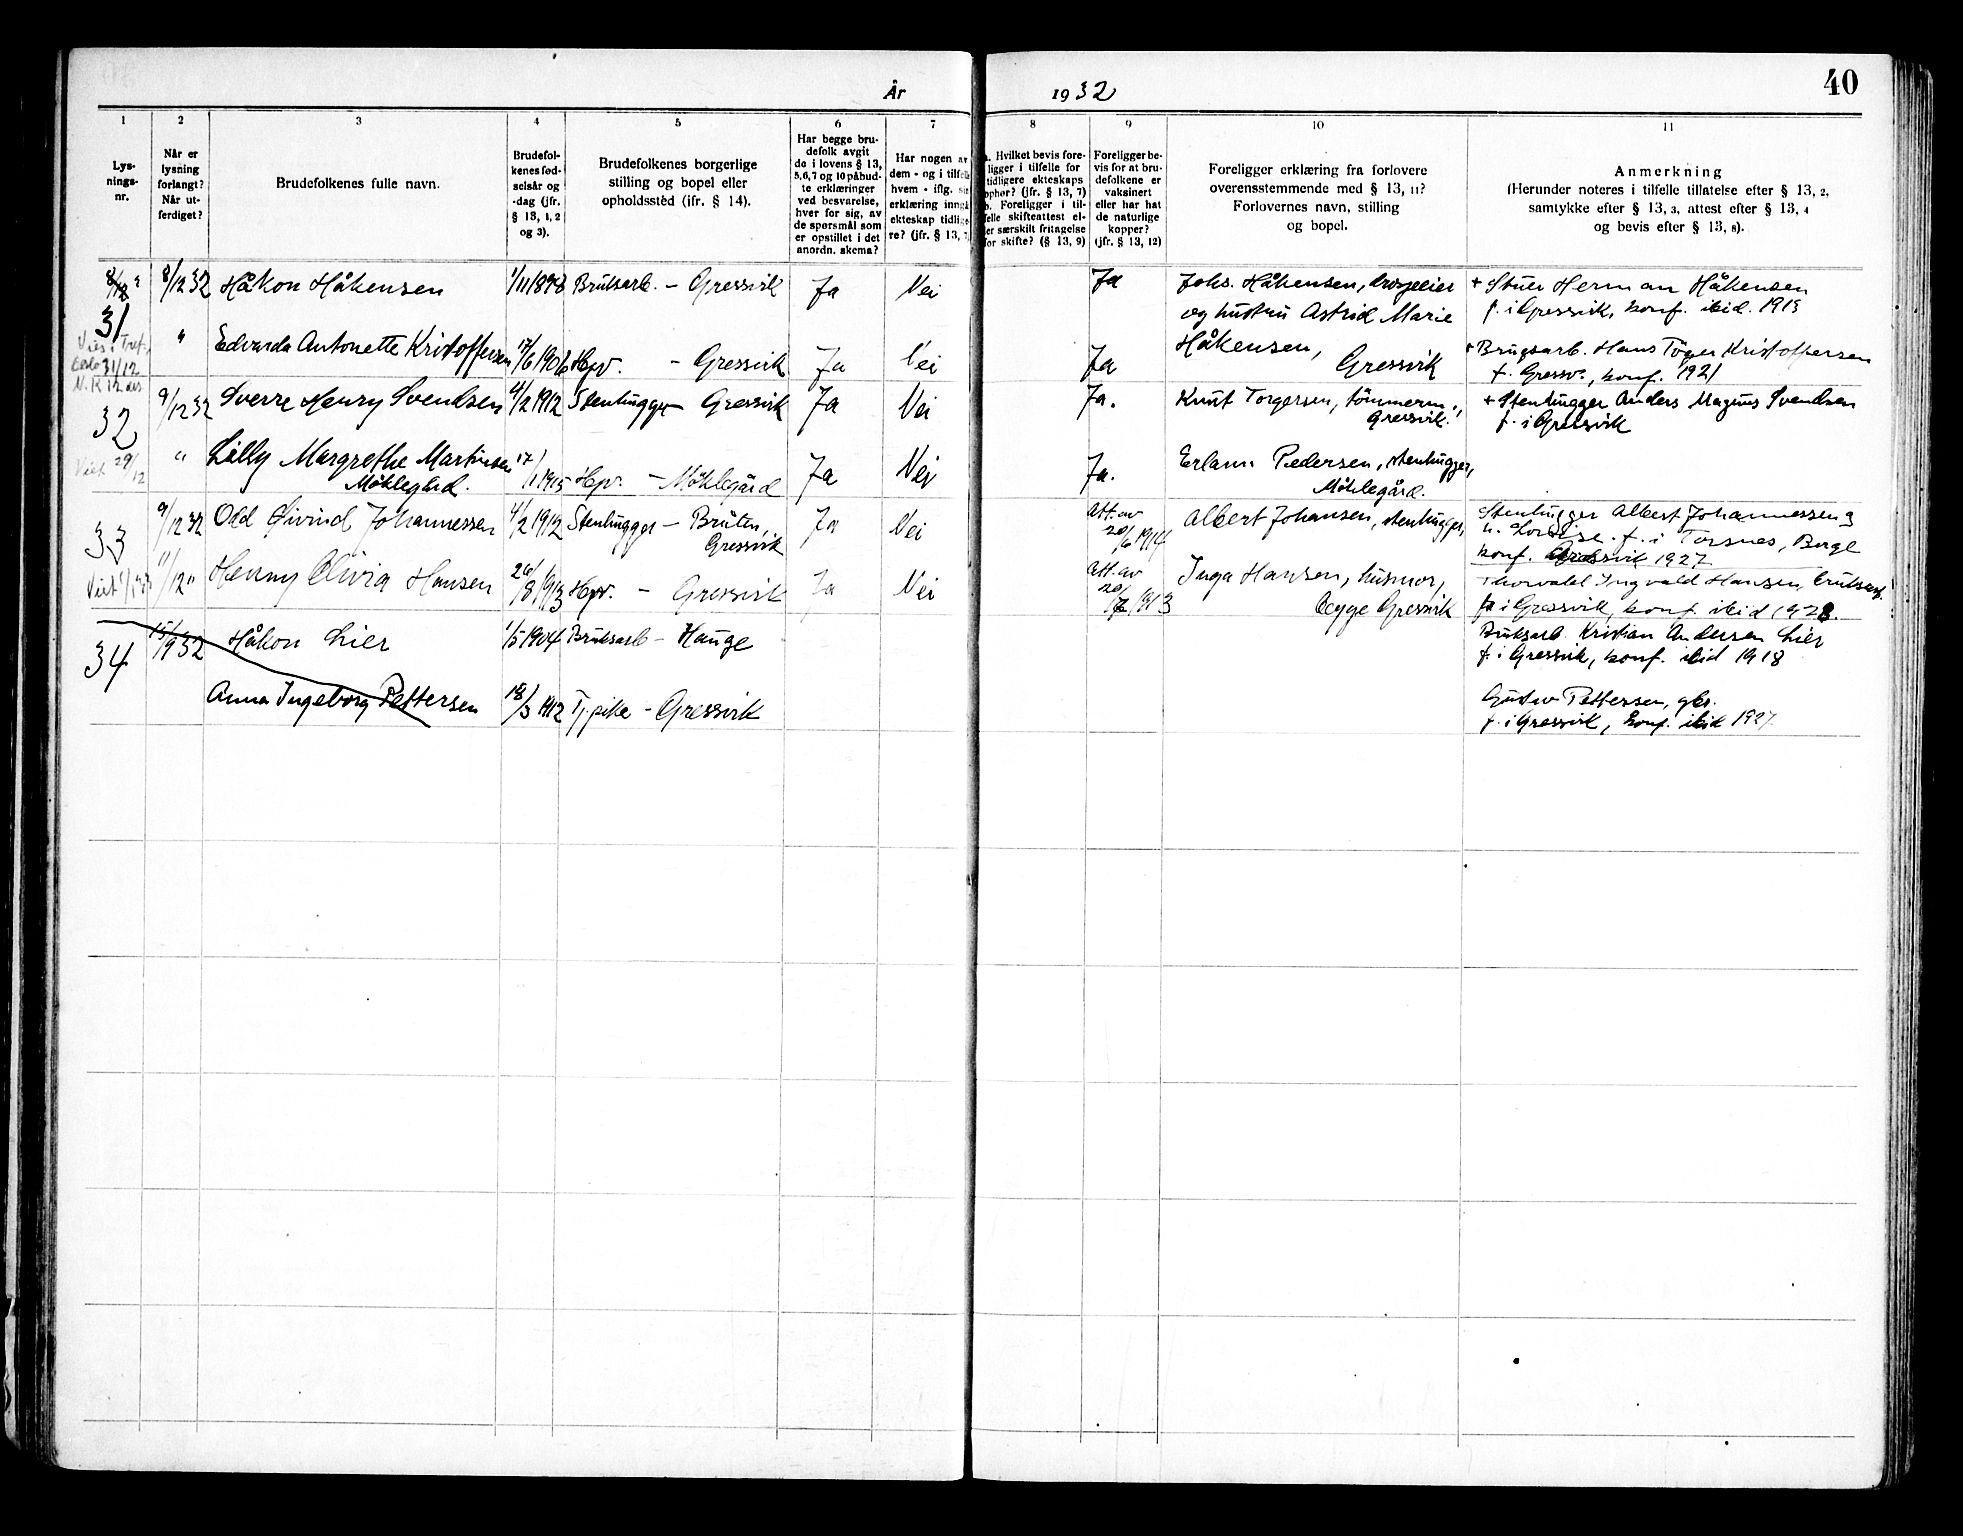 År 1932
40
1 2 3 4 5 6 7 8 9 10 11
Lys-
nings-
nr.
Når er
lysning
forlangt?
Når ut-
ferdiget?
Brudefolkenes fulle navn.
Brudefol-
kenes fød-
selsår og
-dag (jfr.
§ 13, 1, 2
og 3).
Brudefolkenes borgerlige
stilling og bopel eller
opholdssted (jfr. § 14).
Har begge bru-
defolk avgit
de i lovens § 13,
5, 6, 7 og 10 påbud-
te erklæringer
ved besvarelse,
hver for sig, av
de spørsmål som
er opstillet i det
anordn. skema?
Har nogen av
dem - og i tilfelle
hvem - iflg. sin
erklæring inngå
ekteskap tidlige
re? (jfr. § 13,
a. Hvilket bevis fore-
ligger i tilfelle for
tidligere ekteskaps
ophør? (jfr. § 13, 7)
b. Foreligger i til-
felle skifteattest el-
ler særskilt fritagelse
for skifte? (§ 13, 9)
Foreligger be-
vis for at bru-
defolkene er
vaksinert
eller har hat
de naturlige
kopper?
(jfr. § 13, 12)
Foreligger erklæring fra forlovere
overensstemmende med § 13, 11?
Forlovernes navn, stilling
og bopel.
Anmerkning
(Herunder noteres i tilfelle tillatelse efter § 13, 2,
samtykke efter § 13, 3, attest efter § 13, 4
og bevis efter § 13, 8).
31
8/12 32 Håkon Håkensen 1/11 1898 Bruksarb. - Gressvik Ja Nei Ja
Johs. Håkensen, drosjeeier
og hustru Astrid Marie
Håkensen,
Gressvik
+ Stuer Herman Håkensen
f. i Gressvik, konf. ibid. 1913
" Edvarda Antonette Kristoffersen 17/6 1906 Hpv. - Gressvik Ja Nei Ja
+ Brugsarb. Hans Kristoffersen
f. Gressv., konf. 1921
Oslo 31/12
32
Viet 29/12
9/12 32 Sverre Henry Svendsen 4/2 1912 Stenhugger - Gressvik Ja Nei Ja.
Knut Torgersen, tömmerm.,
Gressvik.
+ Stenhugger Anders Magnus Svendsen
f. i Gressvik
" Lilly Margrethe Martinsen
Möklegård.
17/1 1915 Hpv. - Möklegård Ja Nei Ja.
Erland Pedersen, stenhugger,
Möklegård.
33
9/12 32 Odd Øivind Johannessen 4/2 1912 Stenhugger - Bråten,
Gressvik
Ja Nei
Att. av
20/6 1914
Albert Johansen, stenhugger,
Stenhugger Albert Johannessen og
h. Lovise. f. i Torsnes, Borge
konf. Gressvik 1927
11/12 " Henny Olivia Hansen 26/8 1913 Hpv. - Gressvik Ja Nei
Att. av
Inga Hansen, husmor,
Gressvik
Thorvald Ingvald Hansen, bruksarb.
f. i Gressvik, konf. ibid 1928.
34
15/9 32 Håkon Lier 1/5 1904 Bruksarb - Hauge
Bruksarb. Kristian Andersen Lier
f. i Gressvik, konf. ibid 1918
Anna Ingeborg Pettersen 18/3 1912 Tj.pike - Gressvik
Gustav Pettersen, gbr.
f. i Gressvik, konf. ibid 1927.